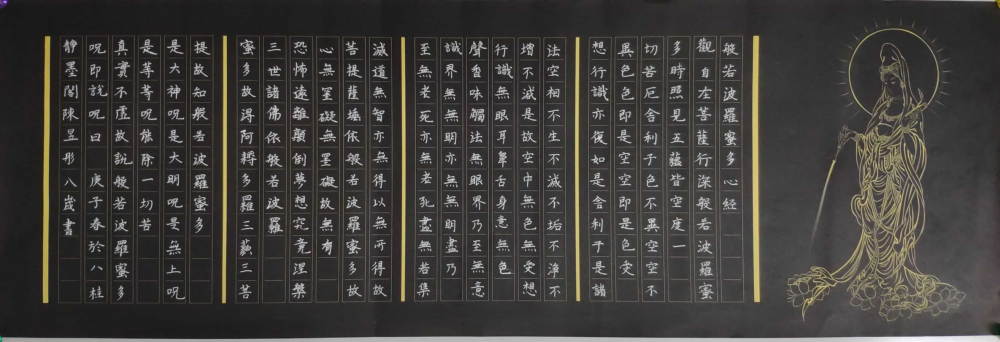 般若波羅蜜多心經
觀自在菩薩行深般若波羅蜜
多時照見五蘊皆空度一
切苦厄舍利子色不異空空不
異色色即是空空即是色受
想行識亦復如是舍利子是諸
法空相不生不滅不垢不淨不
增不減是故空中無色無受想
行識無眼耳鼻舌身意無色
聲香味觸法無眼界乃至無意
識界無無明亦無無明盡乃
至無老死亦無老死盡無苦集
滅道無智亦無得以無所得故
菩提薩埵依般若波羅蜜多故
心無罣礙無罣礙故無有
恐怖遠離顛倒夢想究竟涅槃
三世諸佛依般若波羅
蜜多故得阿耨多羅三藐三菩
提故知般若波羅蜜多
是大神呪是大明呪是無上呪
是等等呪能除一切苦
真實不虛故說般若波羅蜜多
呪即說呪曰 庚子春於八桂
靜墨閣陳昱彤 八歲書